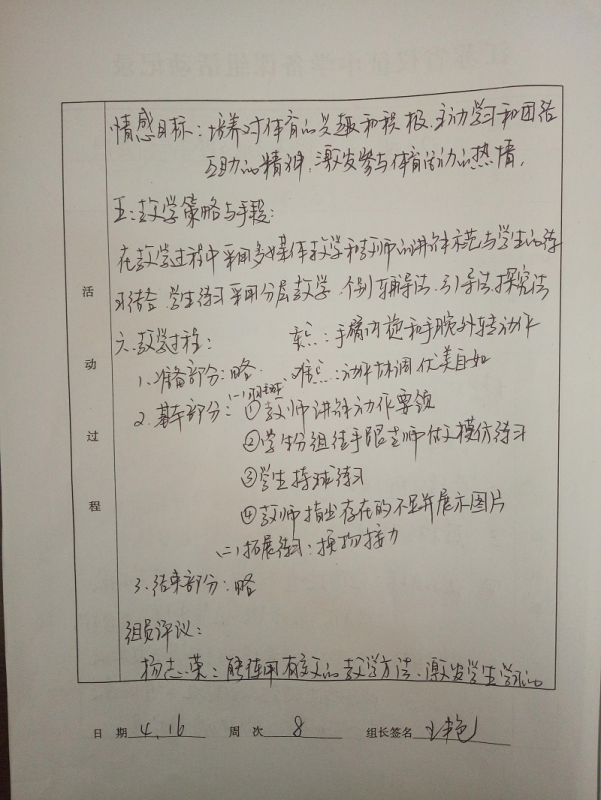 情感目标：培养对体育的兴趣和积极、主动学习和团结
互助的精神，激发参与体育活动的热情。
五：教学策略与手段：
在教学过程中采用多媒体教学和教师的讲解示范与学生的练
习结合，学生练习采用分层教学、个别辅导法、引导法、探究法
六、教学过程： 重点：手臂内旋和手腕外转动作
1、准备部分：略。 难点：动作协调优美自如
2、基本部分：(一)羽毛球 ①教师讲解动作要领
②学生分组徒手跟老师做模仿练习
③学生持球练习
④教师指出存在的不足并展示图片
(二)拓展练习：换物接力
3、结束部分：略
组员评议：
杨志荣：能使用有效的教学方法、激发学生学习的
活动过程
日 期 4.16 周 次 8 组长签名